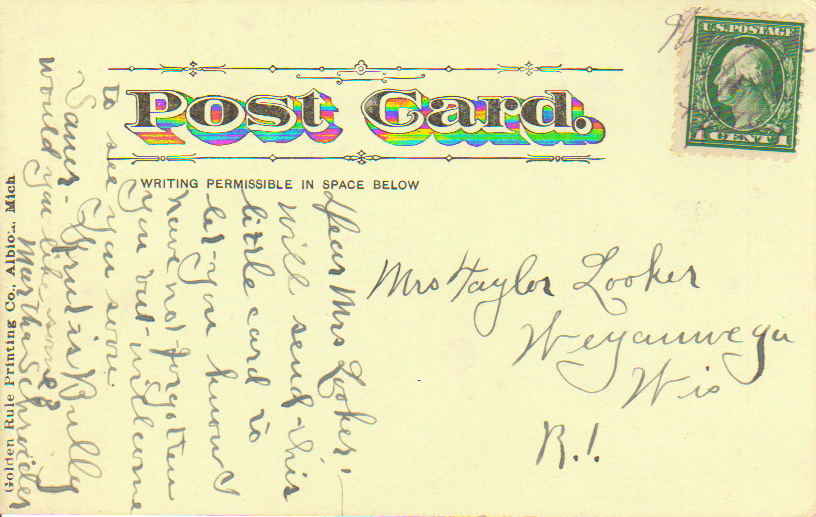 Post Card.
WRITING PERMISSIBLE IN SPACE BELOW
U.S. POSTAGE
1 CENT 1
Dear Mrs Looker!
Will send this
little card to
let you know I
have not forgotten
you but will come
to see you soon.
Kraut is Bully
Sauer-
would you like some?
Martha Schroider
Mrs Taylor Looker
Weyauwega
Wis
R.1.
Golden Rule Printing Co., Albion, Mich